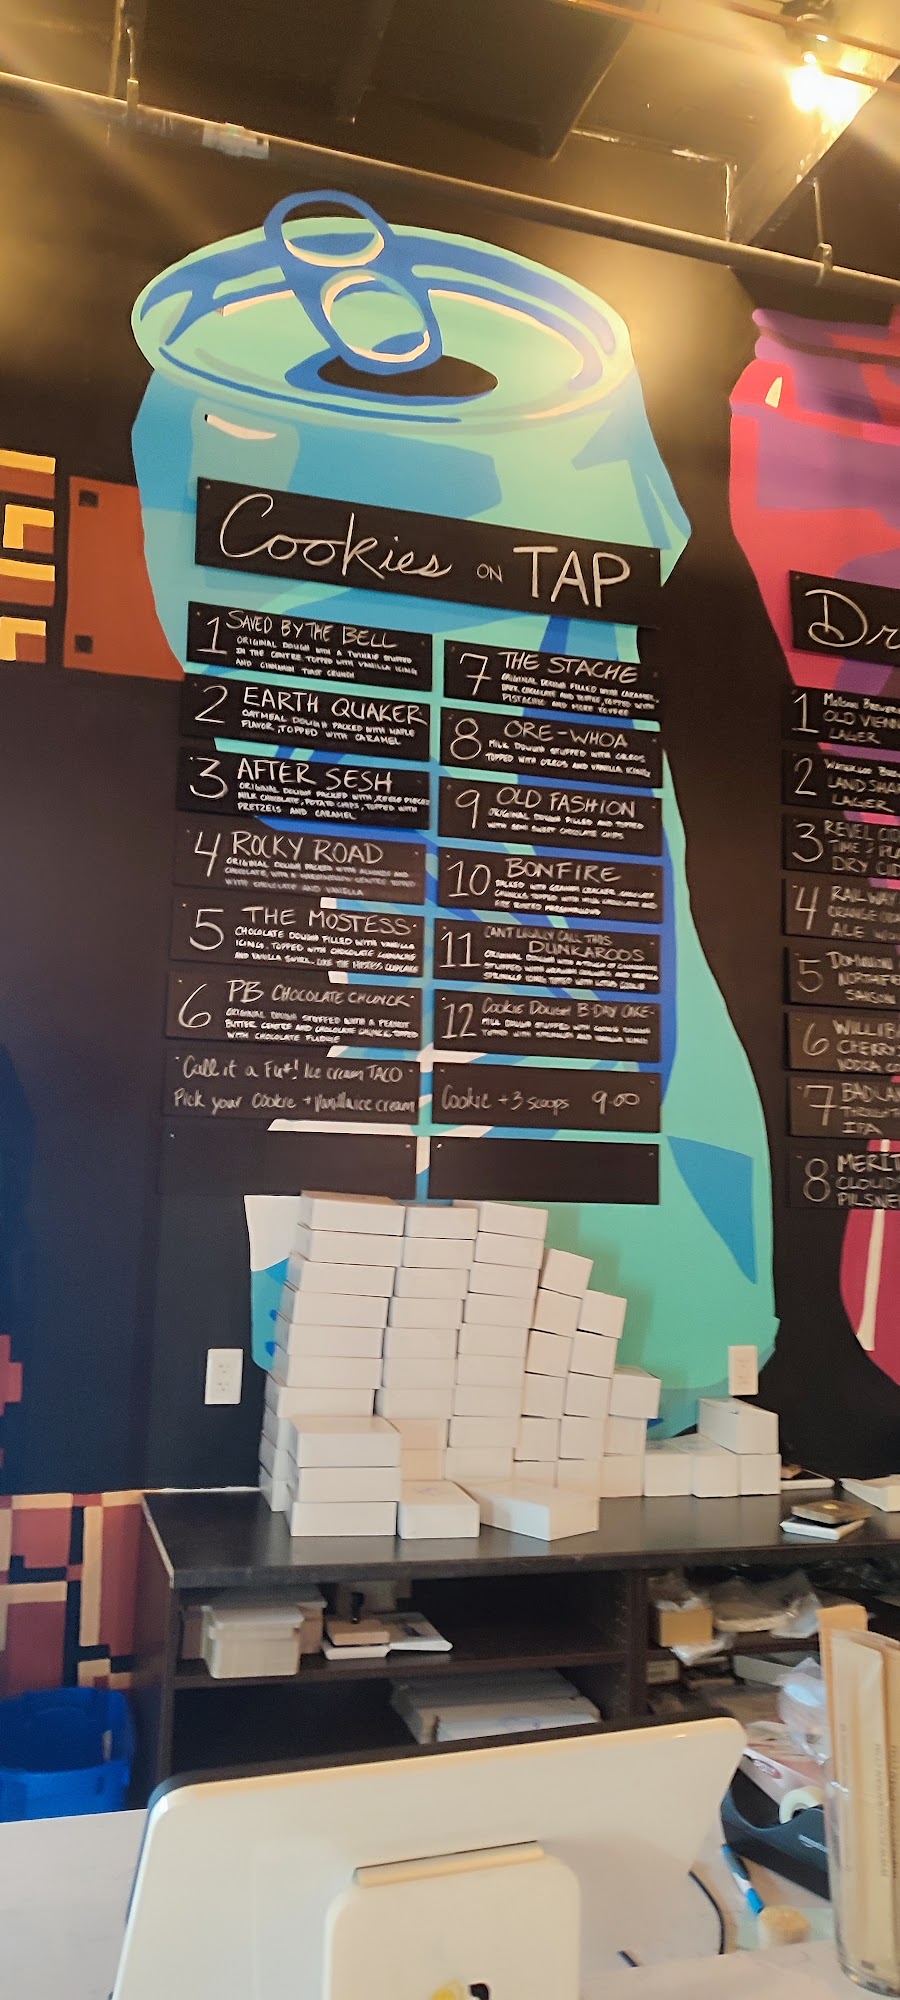 Cookies ON TAP
1 SAVED BY THE BELL
ORIGINAL DOUGH WITH A TWINKIE STUFFED
IN THE CENTRE. TOPPED WITH VANILLA ICING
AND CINNAMON TOAST CRUNCH
2 EARTH QUAKER
OATMEAL DOUGH PACKED WITH MAPLE
FLAVOR, TOPPED WITH CARAMEL
3 AFTER SESH
ORIGINAL DOUGH PACKED WITH PIECES
MILK CHOCOLATE, POTATO CHIPS, TOPPED WITH
PRETZELS AND CARAMEL
4 ROCKY ROAD
ORIGINAL DOUGH PACKED WITH ALMONDS AND
CHOCOLATE, WITH A MARSHMALLOW CENTRE TOPPED
WITH CHOCOLATE AND VANILLA
5 THE MOSTESS
CHOCOLATE DOUGH FILLED WITH VANILLA
ICING. TOPPED WITH CHOCOLATE GANACHE
AND VANILLA SWIRL. LIKE THE HOSTESS CUPCAKE
6 PB CHOCOLATE CHUNCK
ORIGINAL DOUGH STUFFED WITH A PEANUT
BUTTER CENTRE AND CHOCOLATE CHUNCK, TOPPED
WITH CHOCOLATE FUDGE
"Call it a Fu*! Ice cream TACO
Pick your Cookie + Vanilla ice cream
7 THE STACHE
ORIGINAL DOUGH FILLED WITH CARAMEL,
DARK CHOCOLATE AND TOFFEE, TOPPED WITH
PISTACHIO AND MORE TOFFEE
8 ORE-WHOA
MILK DOUGH STUFFED WITH OREOS
TOPPED WITH OREOS AND VANILLA ICING
9 OLD FASHION
ORIGINAL DOUGH FILLED AND TOPPED
WITH SEMI SWEET CHOCOLATE CHIPS
10 BONFIRE
PACKED WITH GRAHAM CRACKER, CHOCOLATE
CHUNCKS TOPPED WITH MILK CHOCOLATE AND
FIRE ROASTED MARSHMALLOWS
11 CAN'T LEGALLY CALL THIS
DUNKAROOS
ORIGINAL DOUGH
STUFFED WITH
SPRINKLE ICING TOPPED WITH COOKIE
12 Cookie Dough B-DAY CAKE
MILK DOUGH STUFFED WITH COOKIE DOUGH
TOPPED WITH SPRINKLES AND VANILLA ICING
Cookie + 3 scoops 9.00
Dr
1 Molson
OLD VIENN
LAGER
2
LANDSHA
LAGER
3 REVEL CI
TIME & PLA
DRY CID
4 RAILWAY
ORANGE
ALE
5 DOMINION
SAISON
6 WILLIB
CHERRY
VODKA CO
7 BADLA
IPA
8 MERIT
CLOUD
PILSNE